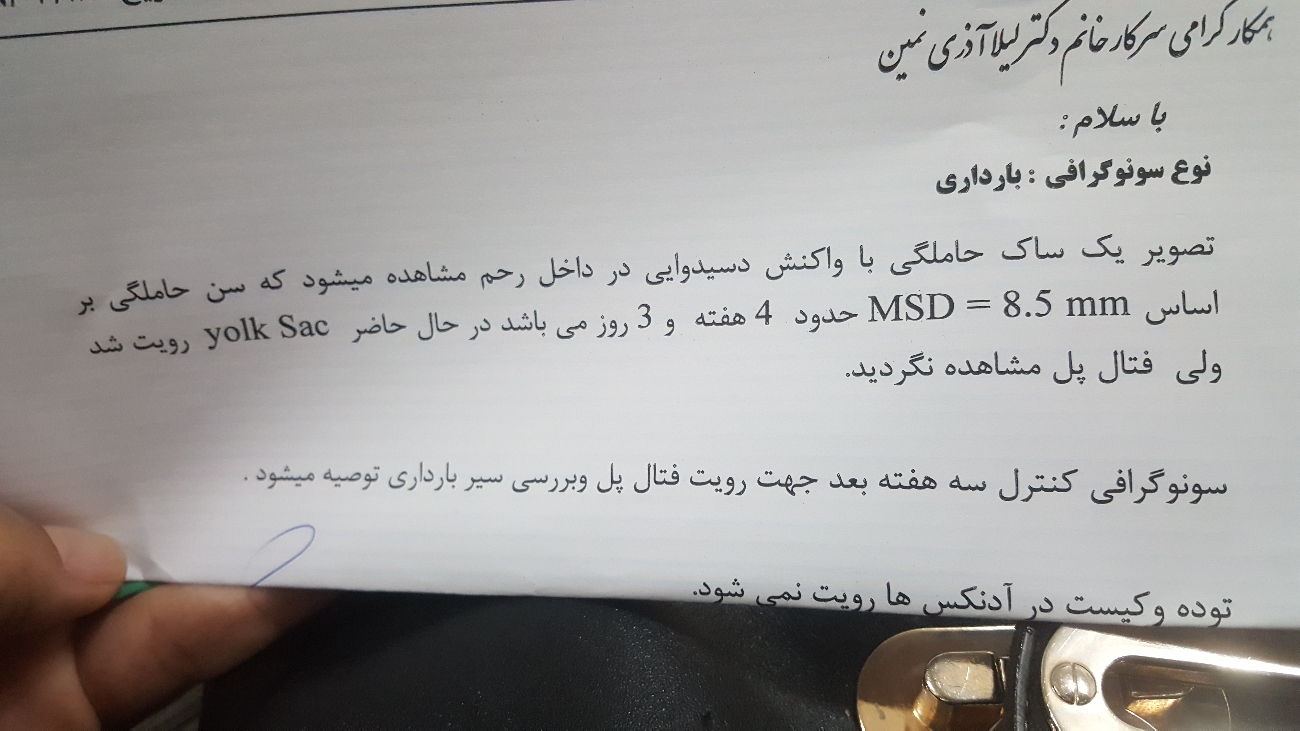 همکار گرامی سرکار خانم دکتر لیلا آذری نمین
با سلام :
نوع سونوگرافی : بارداری
تصویر یک ساک حاملگی با واکنش دسیدوایی در داخل رحم مشاهده میشود که سن حاملگی بر
اساس MSD = 8.5 mm حدود 4 هفته و 3 روز می باشد در حال حاضر yolk Sac رویت شد
ولی فتال پل مشاهده نگردید.
سونوگرافی کنترل سه هفته بعد جهت رویت فتال پل وبررسی سیر بارداری توصیه میشود .
توده وکیست در آدنکس ها رویت نمی شود.